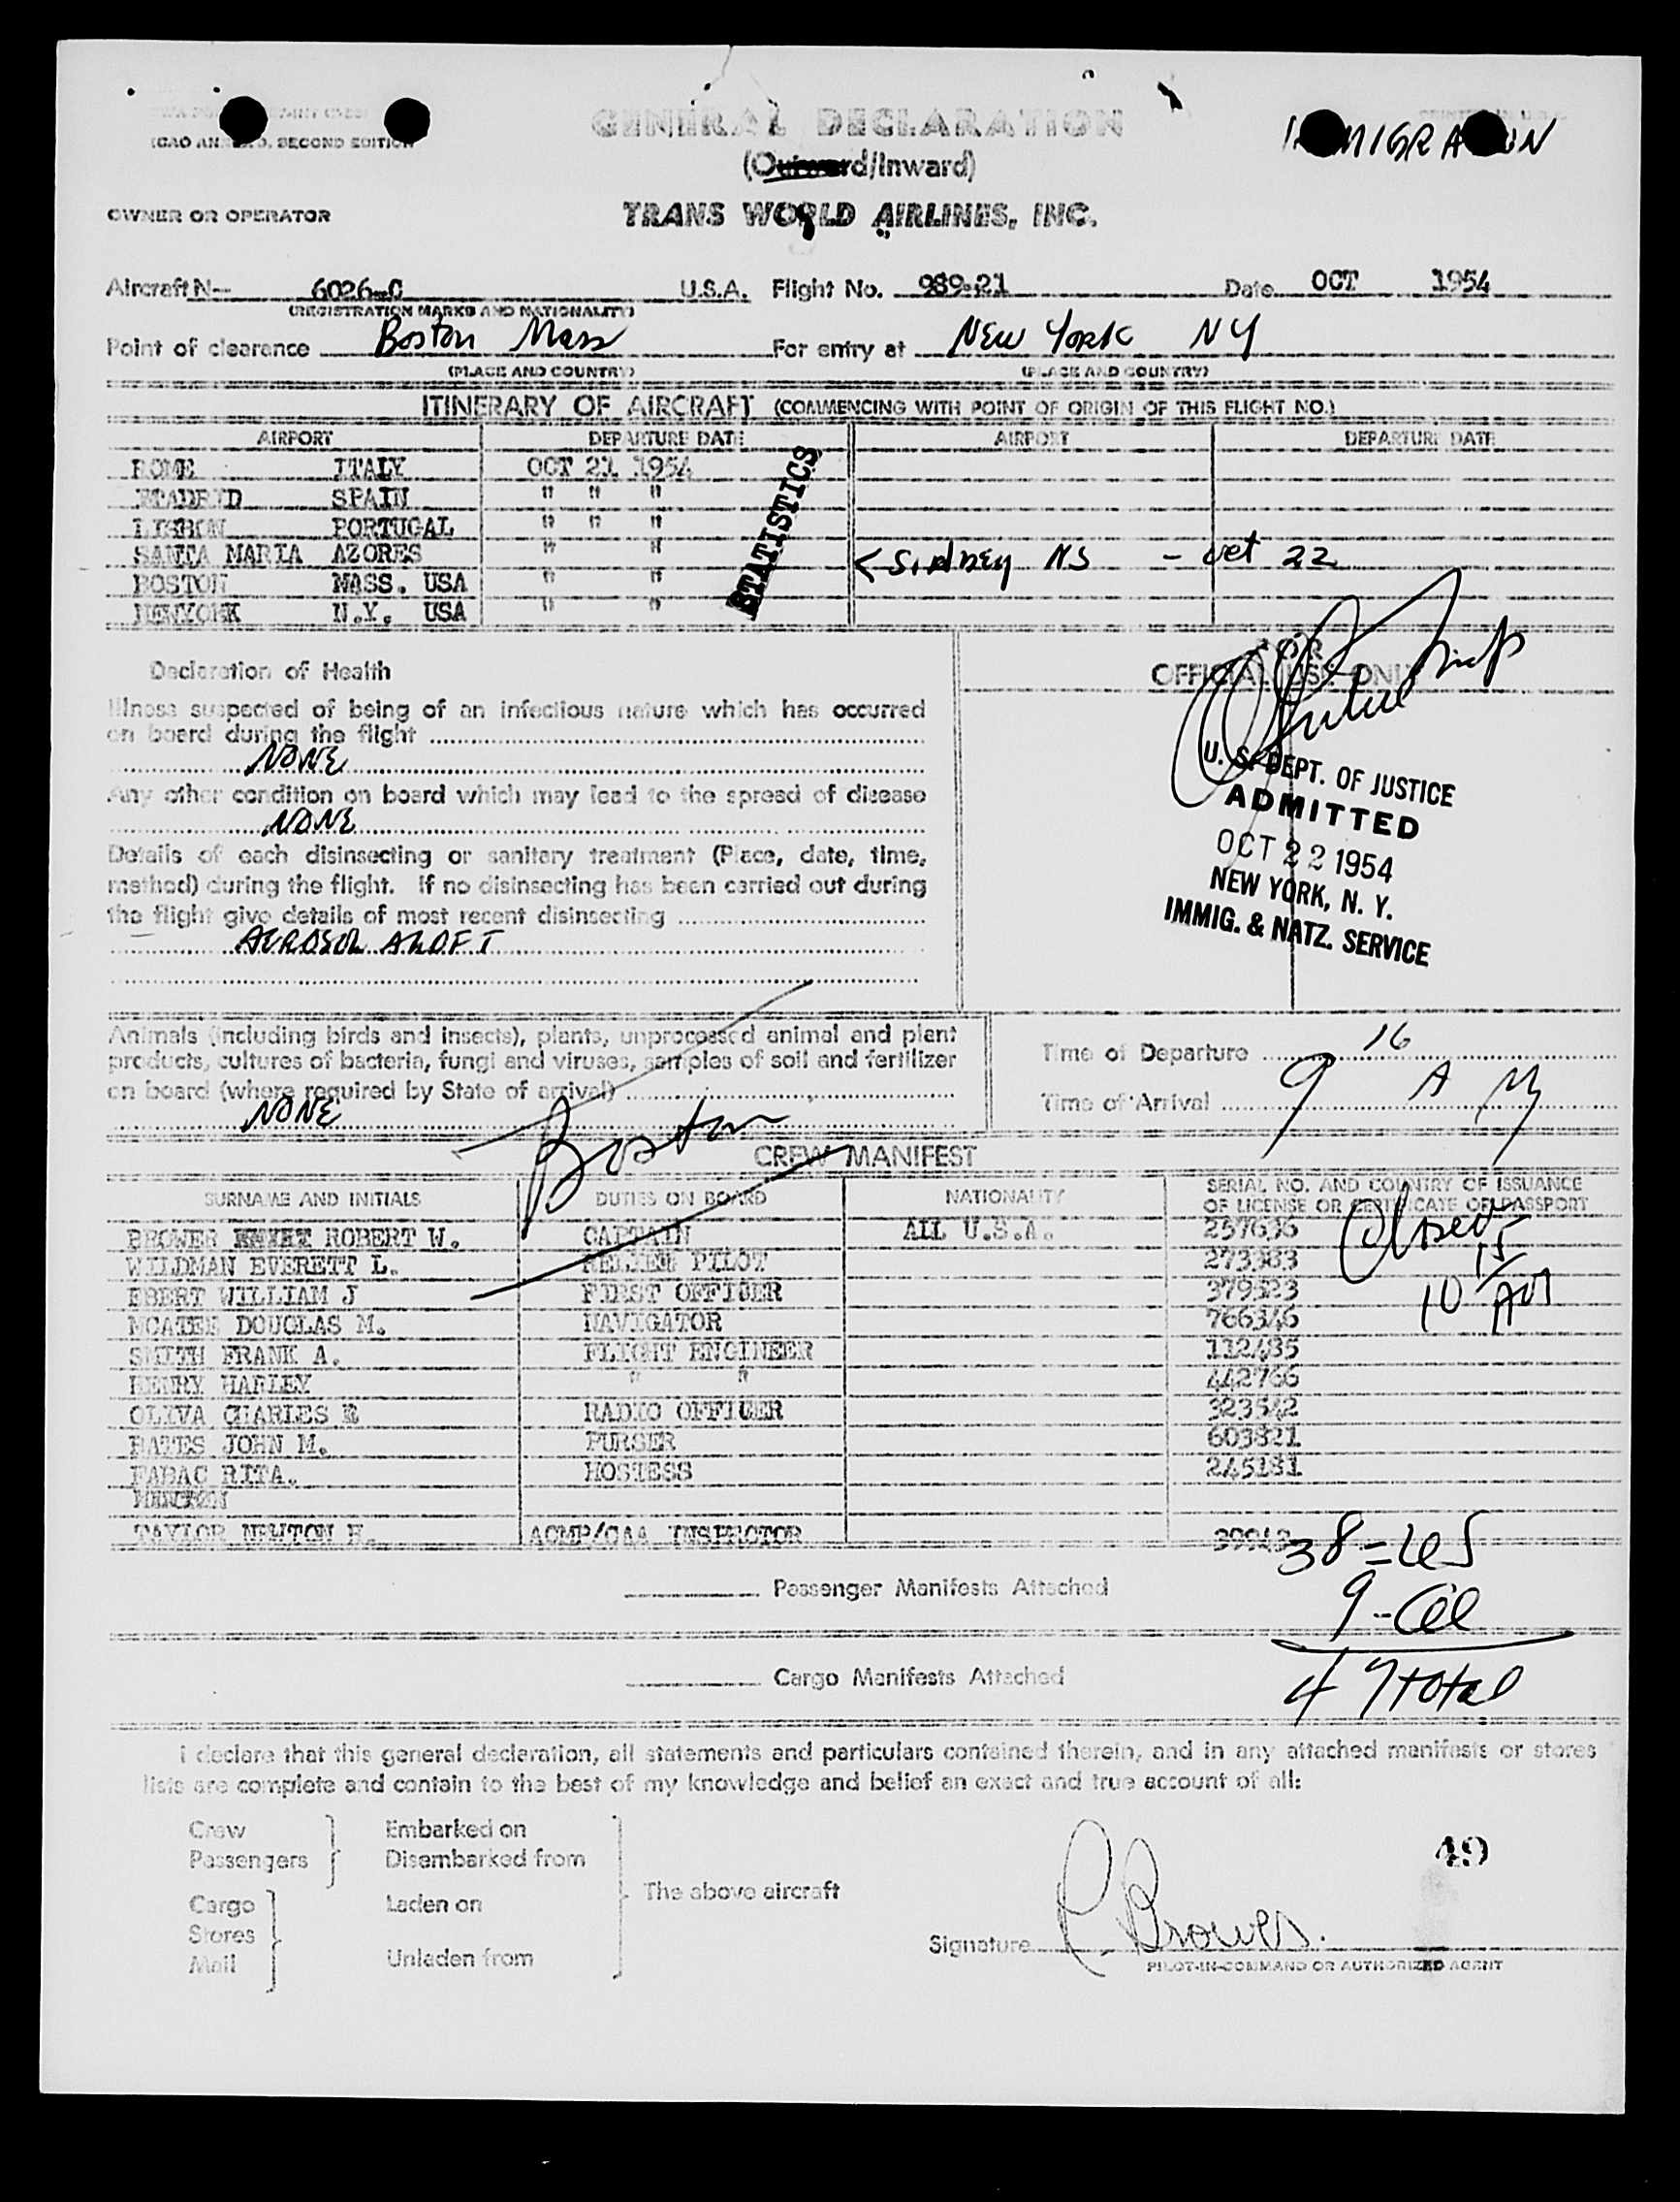 ICAO AN. SECOND EDITION
GENERAL DECLARATION
(Outward/Inward)
IMMIGRATION
OWNER OR OPERATOR
TRANS WORLD AIRLINES, INC.
Aircraft N- 6026-C U.S.A. Flight No. 989-21 Date OCT 1954
(REGISTRATION MARKS AND NATIONALITY)
Point of clearance Boston Mass For entry at New York NY
(PLACE AND COUNTRY) (PLACE AND COUNTRY)
ITINERARY OF AIRCRAFT (COMMENCING WITH POINT OF ORIGIN OF THIS FLIGHT NO.)
AIRPORT DEPARTURE DATE AIRPORT DEPARTURE DATE
ROME ITALY OCT 21 1954
MADRID SPAIN " " "
LISBON PORTUGAL " " "
SANTA MARIA AZORES " " < Sidney NS - Oct 22
BOSTON MASS. USA " "
NEWYORK N.Y. USA " "
STATISTICS
FOR
OFFICIAL USE ONLY
Declaration of Health
Illness suspected of being of an infectious nature which has occurred
on board during the flight
NONE
Any other condition on board which may lead to the spread of disease
NONE
Details of each disinsecting or sanitary treatment (Place, date, time,
method) during the flight. If no disinsecting has been carried out during
the flight give details of most recent disinsecting
AEROSOL ALOFT
U. S. DEPT. OF JUSTICE
ADMITTED
OCT 22 1954
NEW YORK, N. Y.
IMMIG. & NATZ. SERVICE
Animals (including birds and insects), plants, unprocessed animal and plant
products, cultures of bacteria, fungi and viruses, samples of soil and fertilizer
on board (where required by State of arrival)
NONE
Time of Departure 16
Time of Arrival 9 A M
Boston
CREW MANIFEST
SURNAME AND INITIALS DUTIES ON BOARD NATIONALITY SERIAL NO. AND COUNTRY OF ISSUANCE
OF LICENSE OR CERTIFICATE OR PASSPORT
BROWER ROBERT W. CAPTAIN ALL U.S.A. 257636
WILDMAN EVERETT L. RELIEF PILOT 273983
EBERT WILLIAM J FIRST OFFICER 379523
MCATEE DOUGLAS M. NAVIGATOR 766346
SMITH FRANK A. FLIGHT ENGINEER 112485
HENRY HARLEY " " 442766
OLIVA CHARLES E RADIO OFFICER 323542
BATES JOHN M. PURSER 603821
FABAC RITA. HOSTESS 245181
TAYLOR NEWTON H. ACMP/CAA INSPECTOR
10 15 AM
38 = US
9 -
47 total
Passenger Manifests Attached
Cargo Manifests Attached
I declare that this general declaration, all statements and particulars contained therein, and in any attached manifests or stores
lists are complete and contain to the best of my knowledge and belief an exact and true account of all:
Crew Embarked on
Passengers Disembarked from
Cargo Laden on
Stores
Mail Unladen from
The above aircraft
49
Signature R. Brower.
PILOT-IN-COMMAND OR AUTHORIZED AGENT